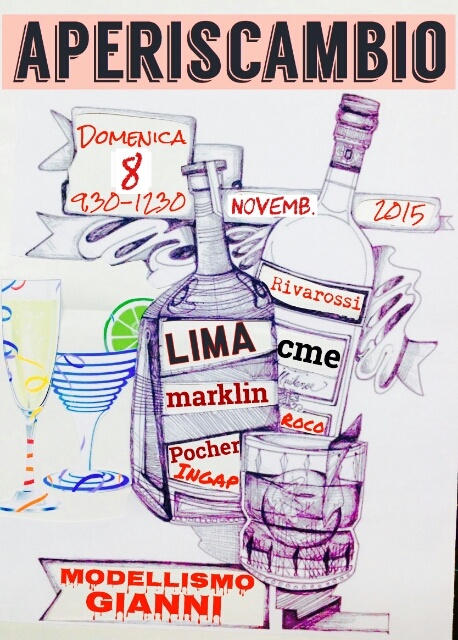 APERISCAMBIO
DOMENICA
8
9,30-1230
NOVEMB.
2015
Rivarossi
LIMA
cme
marklin
ROCO
Pocher
INGAP
MODELLISMO
GIANNI